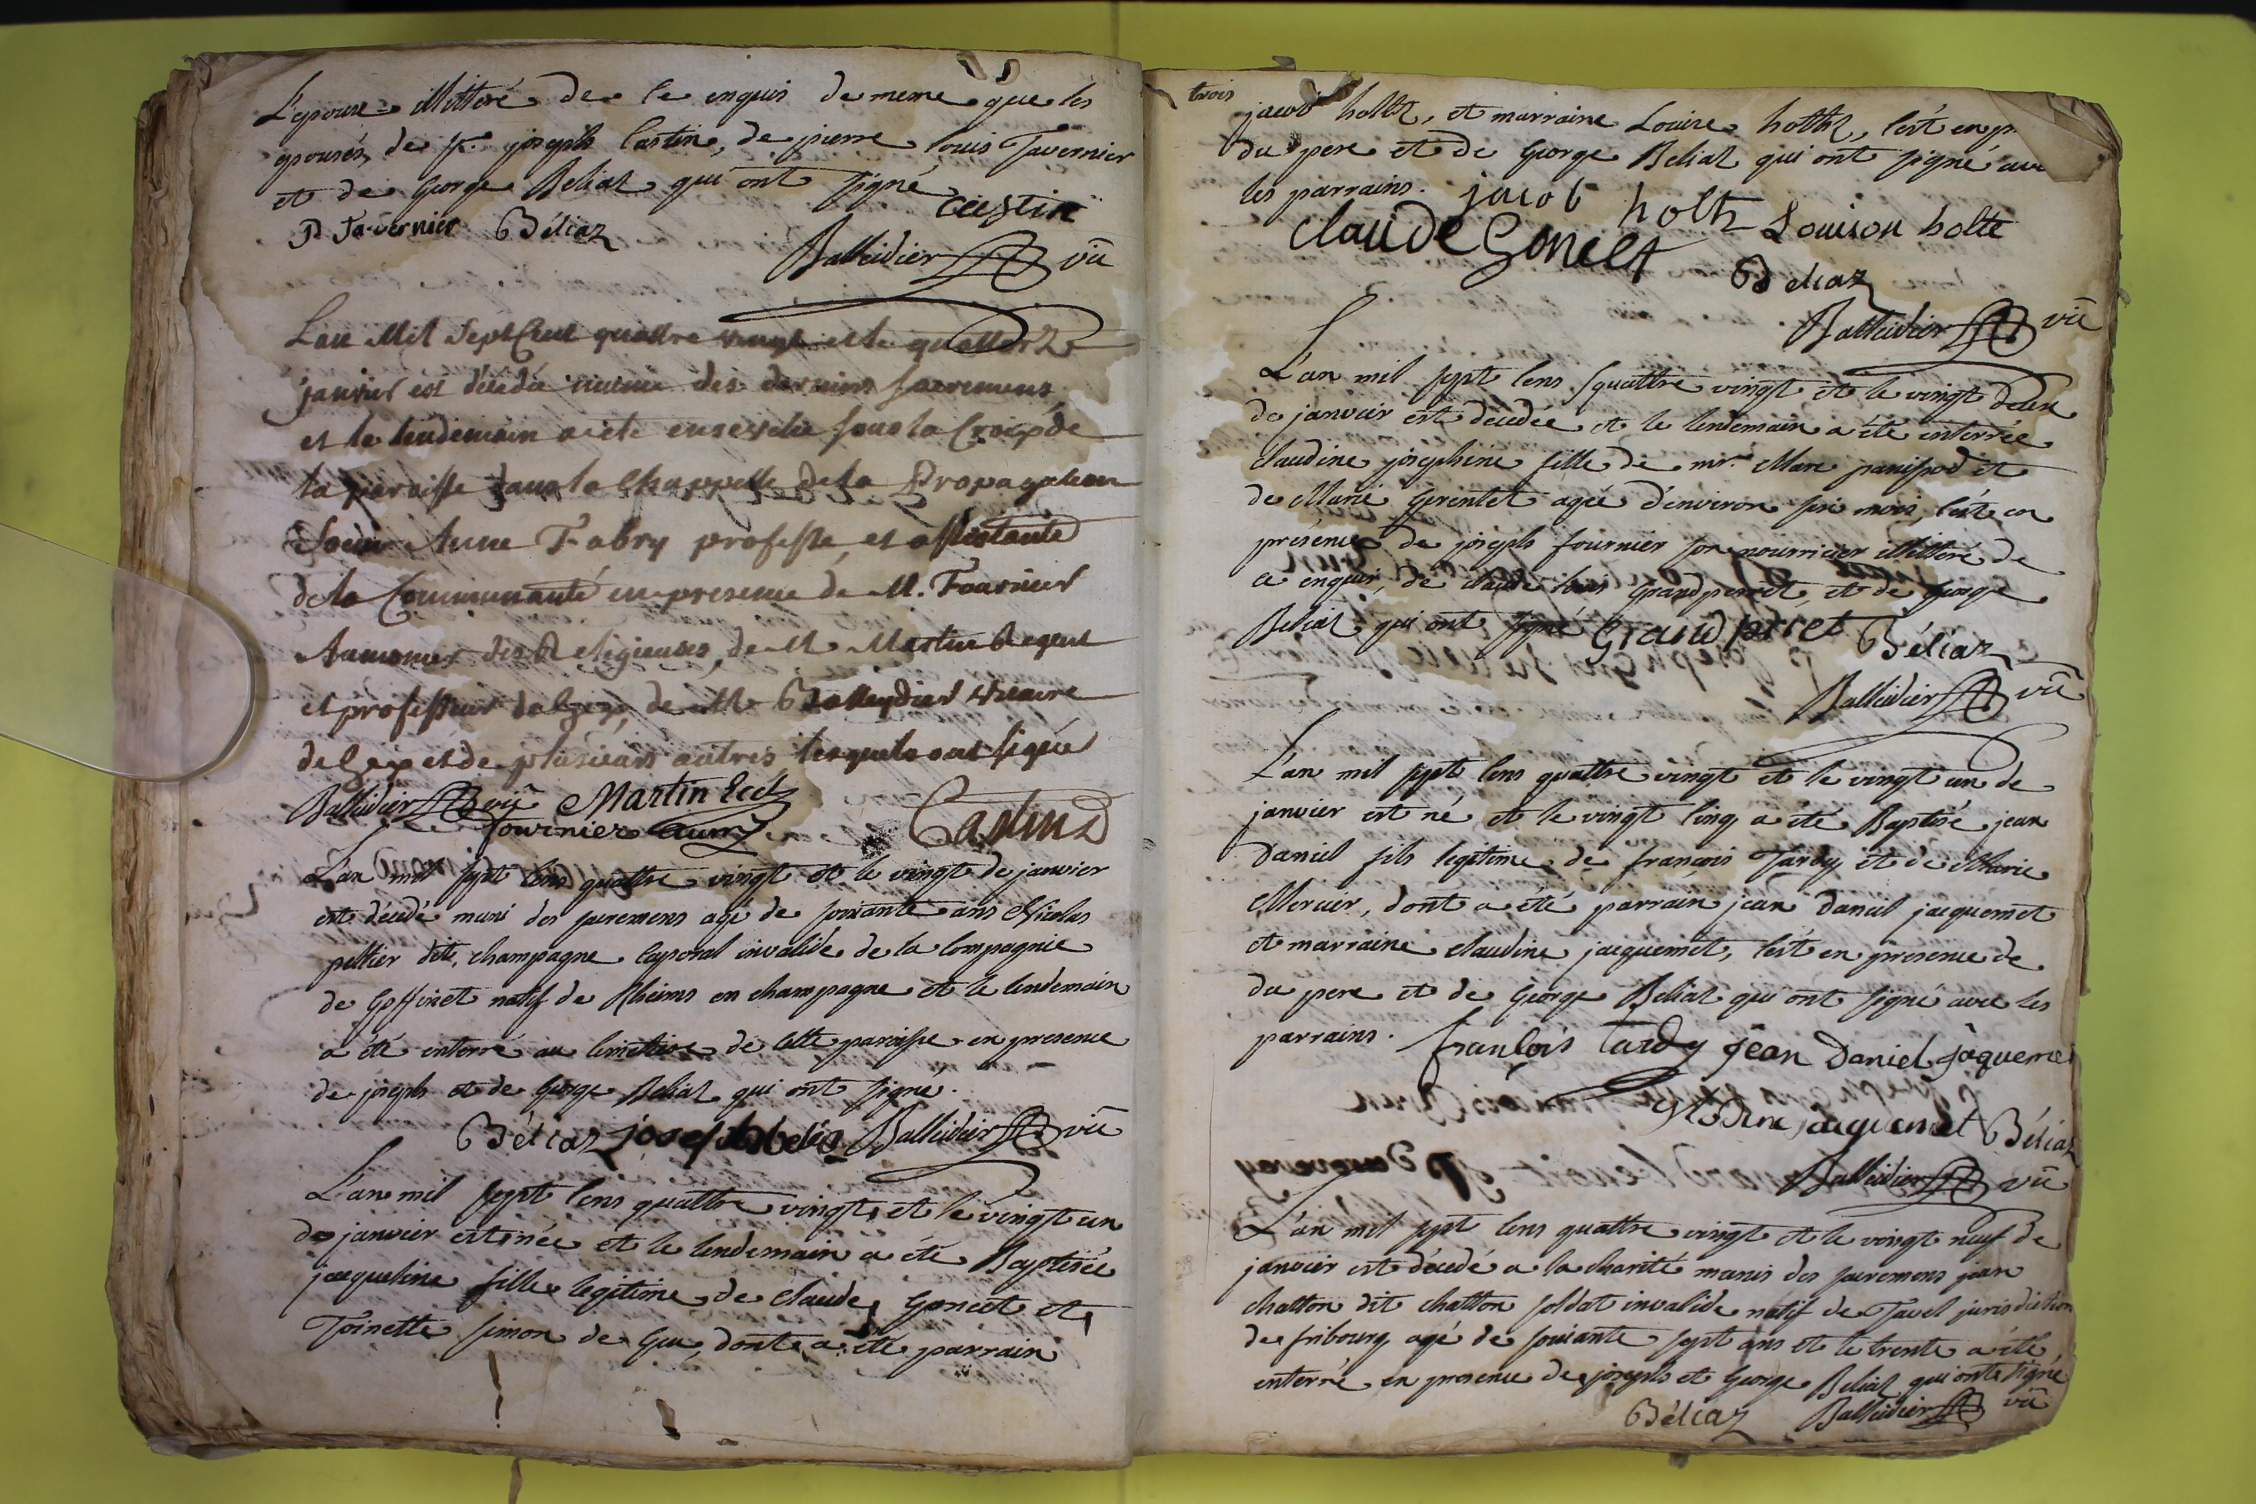 L'epouse illitteré de ce enquis de meme que les
epousés, de Sr. joseph Castin, de pierre Louis Tavernier
et de George Béliaz qui ont signé
Castin
P Tavernier Béliaz
Balleidier vic
L'an Mil Sept Cent quattre vingt et le quattorze
janvier est décédée munie des derniers sacremens
et le lendemain a été ensevelie sous la Croix de
la paroisse dans la Chappelle de la Propagation
Soeur Anne Fabry professe, et assistante
de la Communauté en presence de M. Fournier
Aumonier des Religieuses, de M Martin Regent
et professeur de Gex, de Mr Balleydier vicaire
de Gex et de plusieurs autres lesquels ont signé
Balleidier vic Martin Eccl
fournier aum.
Castin
L'an mil sept cens quattre vingt et le vingt de janvier
est décédé muni des sacremens agé de soixante ans Nicolas
peltier dit champagne Caporal invalide de la Compagnie
de Goffinet natif de Rheims en champagne et le lendemain
a été enterré au Cimetiere de cette paroisse en presence
de joseph et de George Béliaz qui ont signé.
Béliaz joseph béliz Balleidier vic
L'an mil sept cens quattre vingt, et le vingt un
de janvier est née et le lendemain a été Baptisée
jacqueline fille legitime de Claude Goncet et
Toinette Simon de Gex, dont a été parrain
trois
jacob holtz, et marraine Louise holtz, c'est en
du pere et de George Béliaz qui ont signé
les parrains. jacob holtz Louison holte
claude Goncet
Béliaz
Balleidier vic
L'an mil sept cens quattre vingt et le vingt deux
de janvier est décédée et le lendemain a été enterrée
claudine josephine fille de mr. Marc panissod et
de Marie Gerentet agée d'environ six mois, c'est en
présence de joseph fournier son nourricier illitteré de
ce enquis, de claude louis Grandperret, et de George
Béliaz qui ont signé Grandperret Béliaz
Balleidier vic
L'an mil sept cens quattre vingt et le vingt un de
janvier est né et le vingt cinq a été Baptisé jean
Daniel fils legitime de françois Tardy et de Marie
Mercier, dont a été parrain jean Daniel jacquemet
et marraine claudine jacquemet, c'est en presence de
du pere et de George Béliaz qui ont signé avec les
parrains. françois tardy jean Daniel jaqueme
jaquemet Béliaz
Balleidier vic
L'an mil sept cens quattre vingt et le vingt neuf de
janvier est décédé a la charité munis des sacremens jean
chatton dit chatton soldat invalide natif de Tavel jurisdiction
de fribourg agé de soixante sept ans et le trente a été
enterré en presence de joseph et George Béliaz qui ont signé
Béliaz Balleidier vic